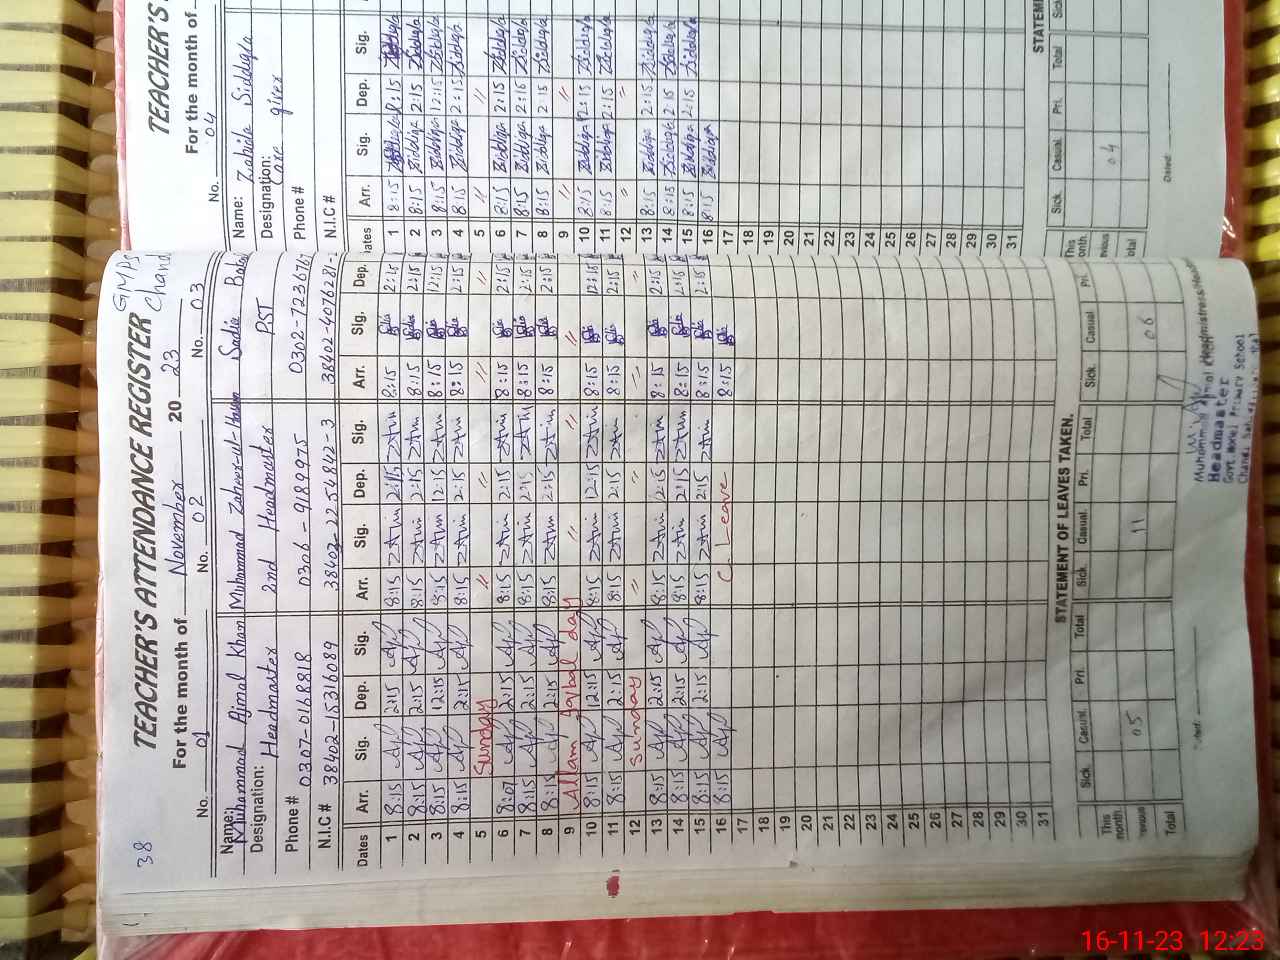 38
TEACHER'S ATTENDANCE REGISTER
GMPS
Chand
For the month of November 20 23
No. 01 No. 02 No. 03
Name: Muhammad Ajmal Khan Muhammad Zaheer-ul-Hassan Sadia
Designation: Headmaster 2nd Headmaster PST
Phone # 0307-0168818 0306-9189975 0302-7236767
N.I.C # 38402-15316089 38403-2254842-3 38402-4076281-
Dates Arr. Sig. Dep. Sig. Arr. Sig. Dep. Sig. Arr. Sig. Dep.
1 8:15 2:15 8:15 2:15 8:15 2:15
2 8:15 2:15 8:15 2:15 8:15 2:15
3 8:15 12:15 8:15 12:15 8:15 12:15
4 8:15 2:15 8:15 2:15 8:15 2:15
5 Sunday " " " "
6 8:07 2:15 8:15 2:15 8:15 2:15
7 8:15 2:15 8:15 2:15 8:15 2:15
8 8:15 2:15 8:15 2:15 8:15 2:15
9 Allam Iqbal day " " "
10 8:15 12:15 8:15 12:15 8:15 12:15
11 8:15 2:15 8:15 2:15 8:15 2:15
12 Sunday " " " "
13 8:15 2:15 8:15 2:15 8:15 2:15
14 8:15 2:15 8:15 2:15 8:15 2:15
15 8:15 2:15 8:15 2:15 8:15 2:15
16 8:15 C. Leave 8:15
17
18
19
20
21
22
23
24
25
26
27
28
29
30
31
STATEMENT OF LEAVES TAKEN.
Sick. Casual. Pri Total Sick. Casual. Pri. Total Sick. Casual. Pri.
This month
05 11 06
Total
Muhammad Ajmal
Headmaster
Govt. Model Primary School
TEACHER'S
For the month of
No. 04
Name: Zahida Siddiqa
Designation: Care giver
Phone #
N.I.C #
Arr. Sig. Dep. Sig.
1 8:15 Siddiqa 2:15 Siddiqa
2 8:15 Siddiqa 2:15 Siddiqa
3 8:15 Siddiqa 12:15 Siddiqa
4 8:15 Siddiqa 2:15 Siddiqa
5 " "
6 8:15 Siddiqa 2:15 Siddiqa
7 8:15 Siddiqa 2:15 Siddiqa
8 8:15 Siddiqa 2:15 Siddiqa
9 " "
10 8:15 Siddiqa 12:15 Siddiqa
11 8:15 Siddiqa 2:15 Siddiqa
12 " "
13 8:15 Siddiqa 2:15 Siddiqa
14 8:15 Siddiqa 2:15 Siddiqa
15 8:15 Siddiqa 2:15 Siddiqa
16 8:15 Siddiqa
17
18
19
20
21
22
23
24
25
26
27
28
29
30
31
STATEM
Sick. Casual. Pri. Total
This month
04
Dated:
16-11-23 12:23